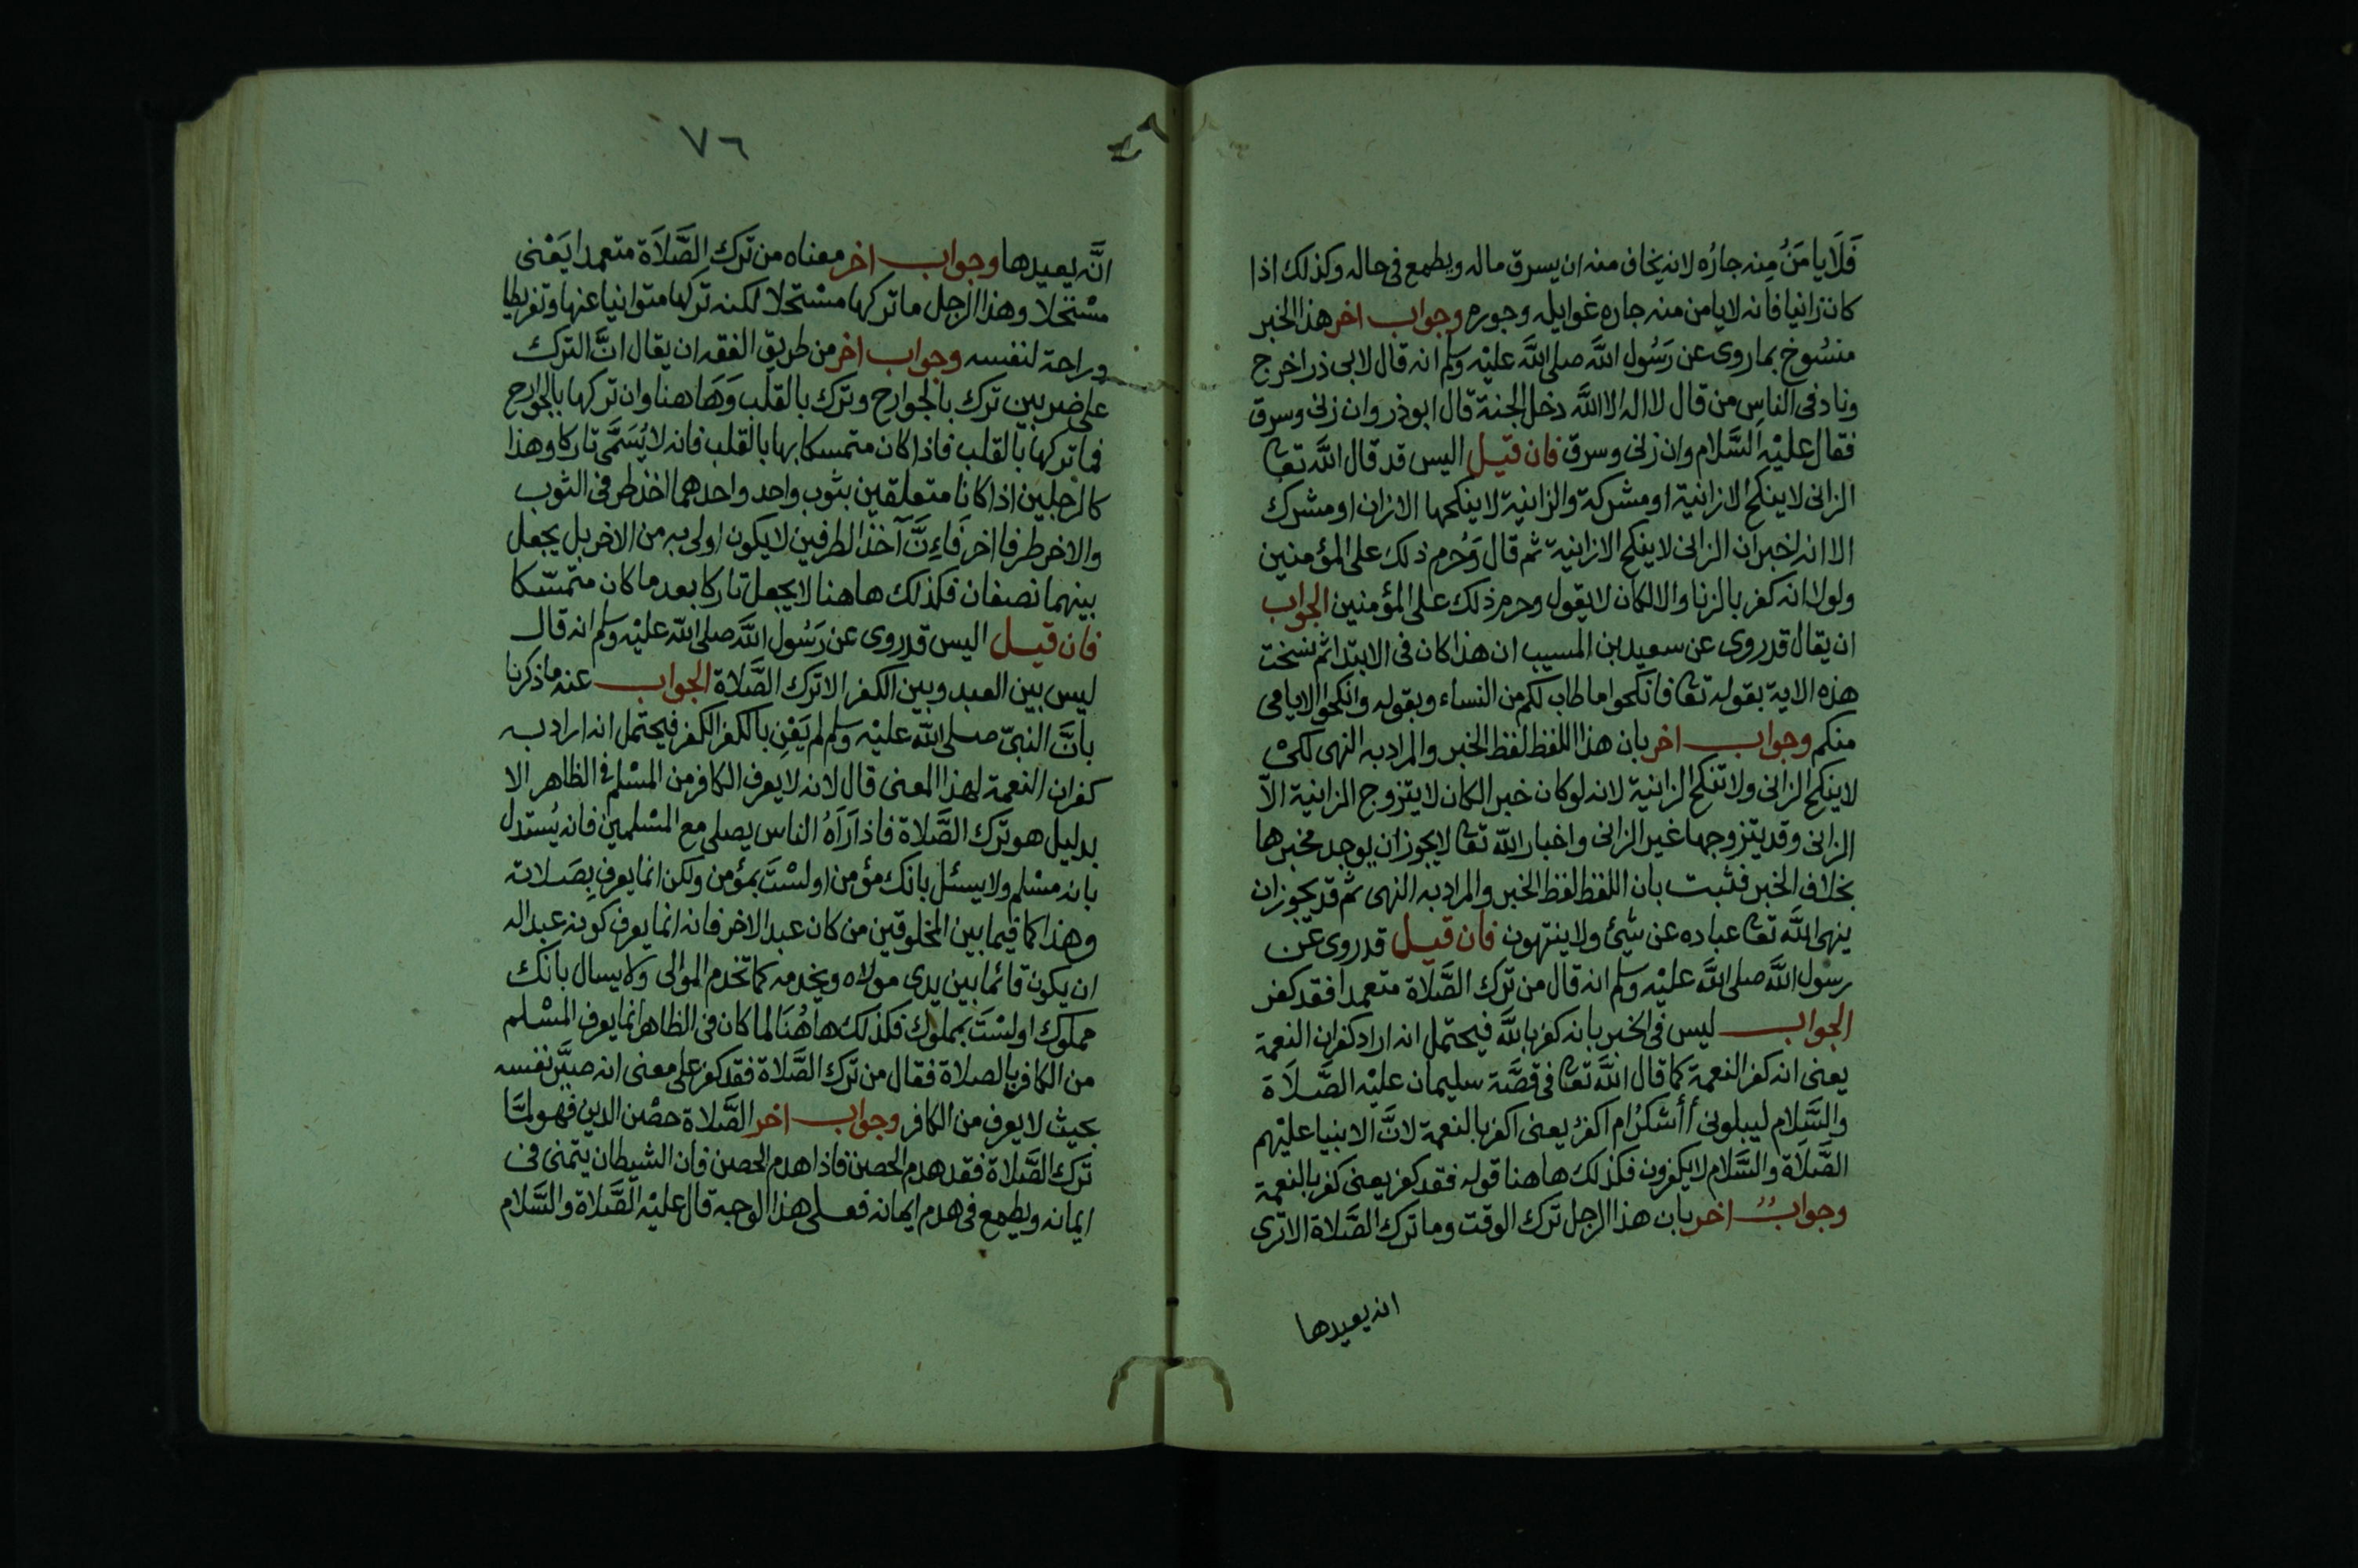 فَلَا يامَنُ مِنه جارُه لانه يخاف منه ان يسرق ماله ويطمع في حاله وكذلك اذا
كان زانيا فانه لا يامن منه جاره غوايله وجوره وجواب اخر هذا الخبر
منسُوخ بما روى عن رَسُول اللَّه صلى اللَّه عليْه وسلم انه قال لابى ذر اخرج
وناد فى الناس من قال لا اله الا اللَّه دخل الجنة قال ابوذر وان زنى وسرق
فقال عليْه السَّلام وان زنى وسرق فان قيل اليس قد قال اللَّه تعا
الزانى لا ينكح الا زانية او مشركة والزانية لا ينكحها الا زان او مشرك
الا انه اخبر ان الزانى لا ينكح الا زانية ثم قال وَحُرم ذلك على المؤمنين
ولولا انه كفر بالزنا والا لكان لا يقول وحرم ذلك على المؤمنين الجواب
ان يقال قد روى عن سعيد بن المسيب ان هذا كان فى الابتدا ثم نسخت
هذه الاية بقوله تعا فانكحوا ما طاب لكم من النساء وبقوله وانكحوا الايامى
منكم وجواب اخر بان هذا اللفظ لفظ الخبر والمراد به النهى لكى
لا ينكح الزانى ولا تنكح الزانية لانه لو كان خبرا لكان لا يتزوج الزانية الّا
الزانى وقد يتزوجها غير الزانى واخبار اللّه تعا لا يجوز ان يوجد مخبرها
بخلاف الخبر فثبت بان اللفظ لفظ الخبر والمراد به النهى ثم قد يجوز ان
ينهى اللَّه تعا عباده عن شئ ولا ينتهون فان قيل قد روى عن
رسول اللَّه صلى اللَّه عليْه وسلم انه قال من ترك الصَّلاة متعمدا فقد كفر
الجواب ليس فى الخبر بانه كفر باللَّه فيحتمل انه اراد كفران النعمة
يعنى انه كفر النعمة كما قال اللَّه تعا فى قصَّة سليمان عليْه الصَّلَاة
والسَّلام ليبلونى أأشكرُ ام اكفرُ يعنى اكفر بالنعمة لانَّ الانبيا عليْهم
الصَّلاة والسَّلام لا يكفرون فكذلك هاهنا قوله فقد كفر يعنى كفر بالنعمة
وجوابٌ اخر بان هذا الرجل ترك الوقت وما ترك الصَّلاة الا ترى
انه يعيدها
٧٦
انَّه يعيدها وجواب اخر معناه من ترك الصَّلَاة متعمدا يَعْنى
مسْتحلا وهذا الرجل ما تركها مسْتحلا لكنه تركها متوانيا عنها وتفريطا
وراحة لنفسه وجواب اخر من طريق الفقه ان يقال انَّ الترك
على ضربين ترك بالجوارح وترك بالقلب وَهَاهنا وان تركها بالجوارح
فما تركها بالقلب فاذا كان متمسكا بها بالقلب فانه لا يُسَمَّى تاركا وهذا
كالرجلين اذا كانا متعلقين بثوب واحد واحدهما اخذ طرفى الثوب
والاخر طرفا اخر فَاِنَّ آخذ الطرفين لا يكون اولى به من الاخر بل يجعل
بينهما نصفان فكذلك هاهنا لا يجعل تاركا بعد ما كان متمسّكا
فان قيل اليس قد روى عن رَسُول اللَّه صلى اللّه عليْه وسلم انه قال
ليس بين العبد وبين الكفر الا ترك الصَّلاة الجواب عنه ما ذكرنا
بانَّ النبىّ صلى اللّه عليْه وسلم لم يَعْنِ بالكفر الكفر فيحتمل انه اراد به
كفران النعمة لهذا المعنى قال لانه لا يعرف الكافر من المسْلم فى الظاهر الا
بدليل هو ترك الصَّلاة فاذا رَآهُ الناس يصلى مع المسْلمين فانه يُستدل
بانه مسْلم ولا يسئل بانك مؤمن او لسْتَ بمؤمن ولكن انما يعرف بِصَلاته
وهذا كما فيما بين المخلوقين من كان عبد الاخر فانه انما يعرف كونه عبدا له
ان يكون قائما بين يدى مولاه ويخدمه كما تخدم الموالى ولا يسال بانك
مملوك او لسْتَ بمملوك فكذلك هاهُنَا لما كان فى الظاهر انما يعرف المسْلم
من الكافر بالصلاة فقال من ترك الصَّلاة فقد كفر على معنى انه صيَّر نفسه
بحيث لا يعرف من الكافر وجواب اخر الصَّلاة حصْن الدين فهو لمَّا
ترك الصَّلاة فقد هدم الحصن فاذا هدم الحصن فان الشيطان يتمنى فى
ايمانه ويطمع فى هدم ايمانه فعلى هذا الوجه قال عليْه الصَّلاة والسَّلام